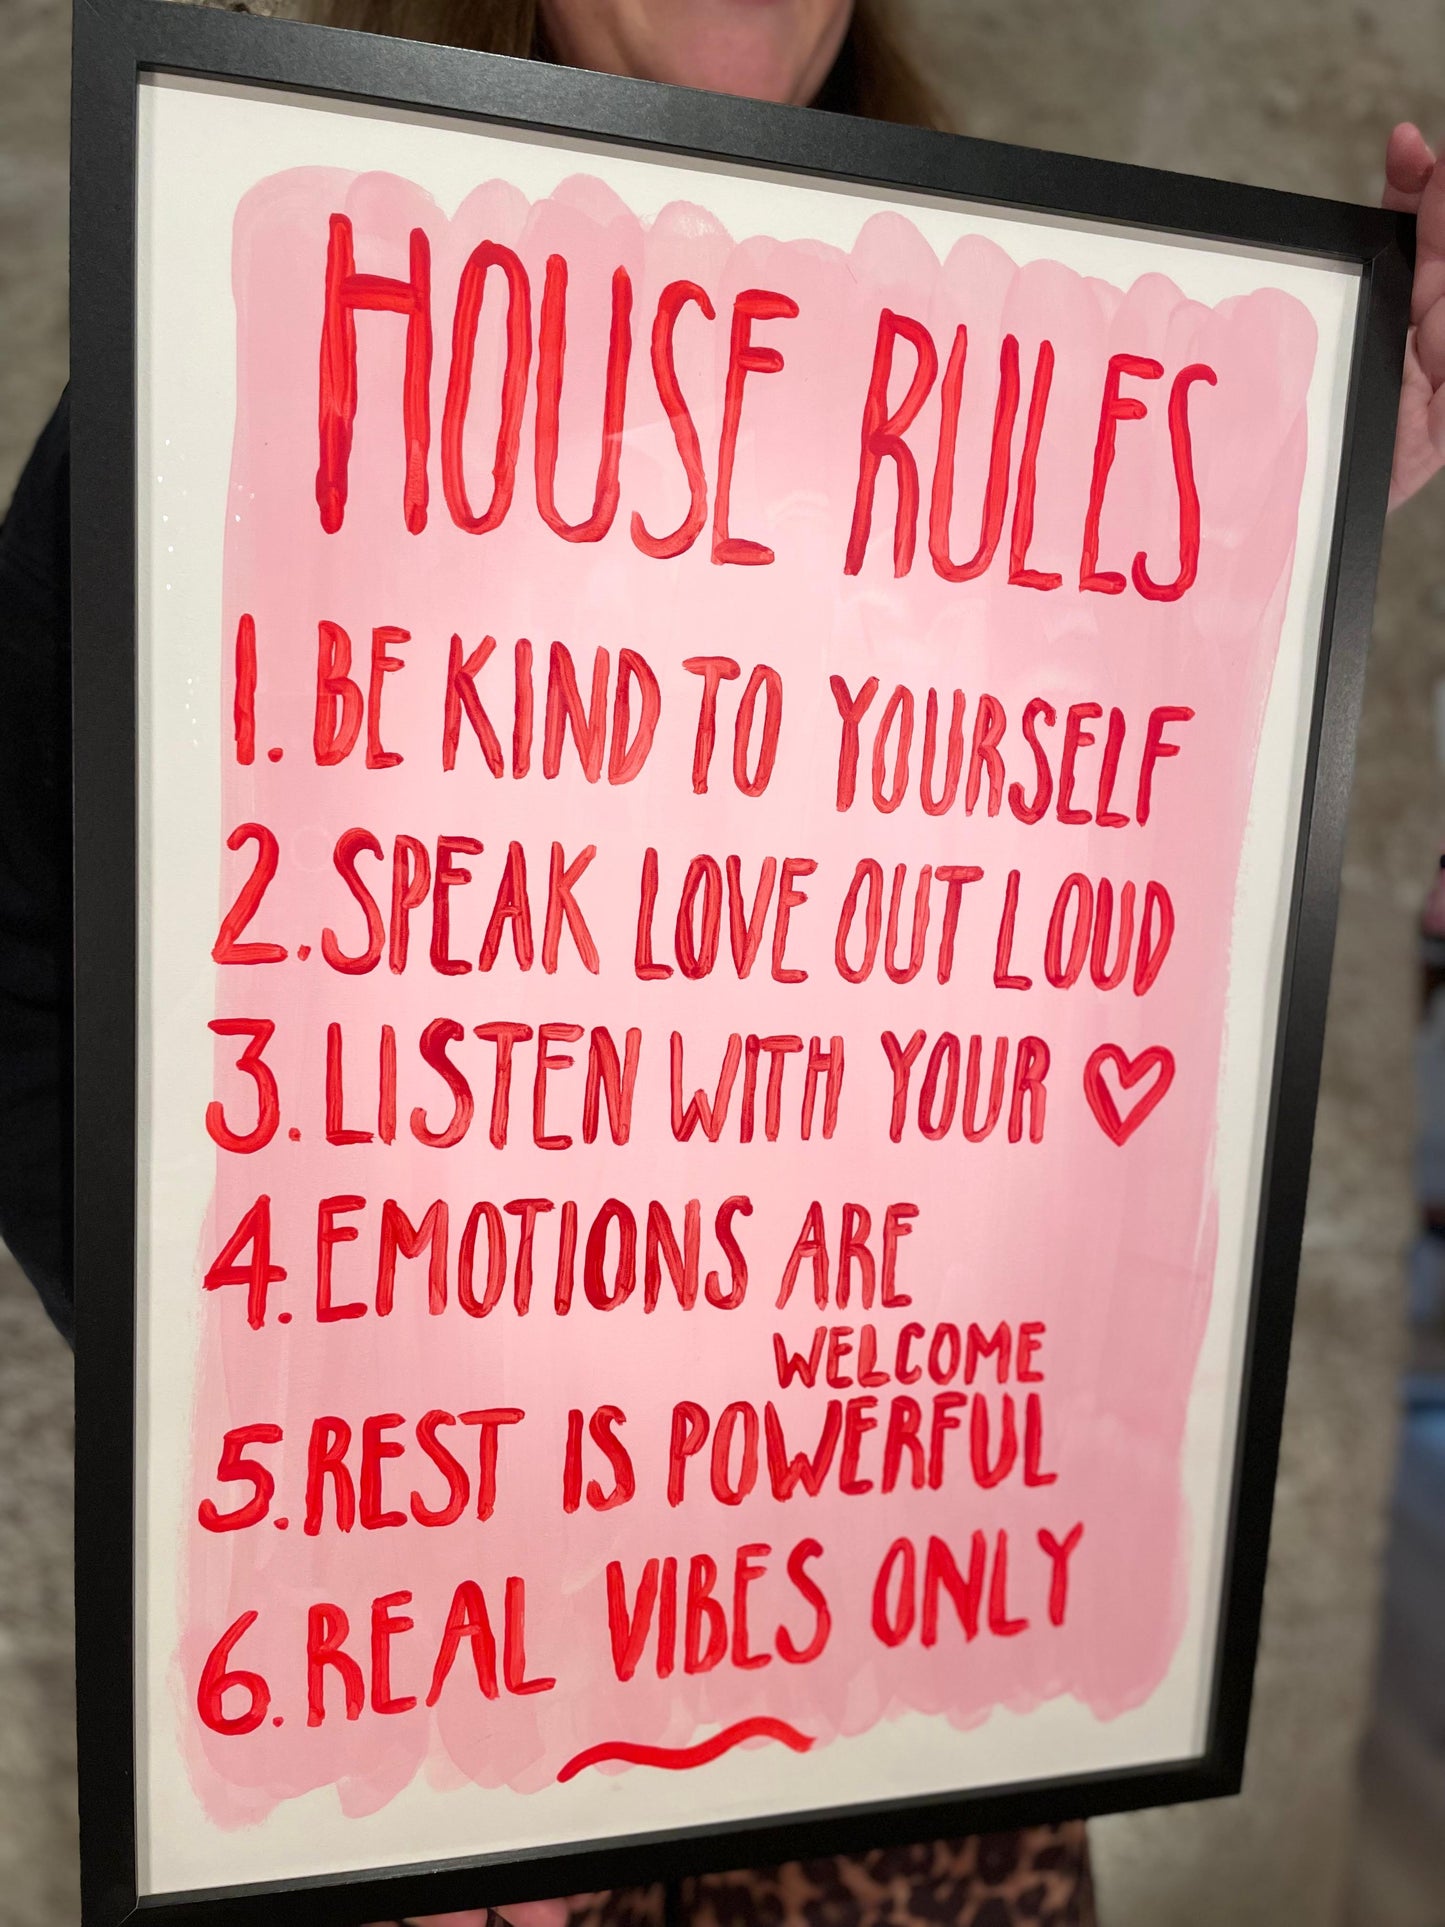 HOUSE RULES
1. BE KIND TO YOURSELF
2. SPEAK LOVE OUT LOUD
3. LISTEN WITH YOUR ♡
4. EMOTIONS ARE
WELCOME
5. REST IS POWERFUL
6. REAL VIBES ONLY